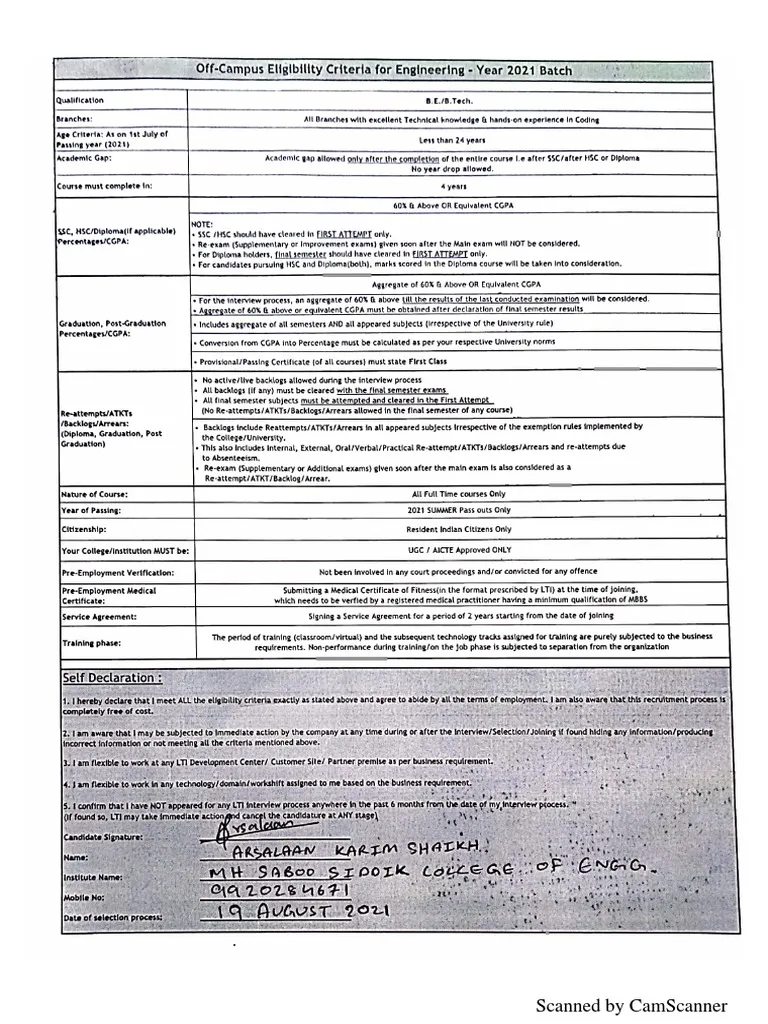 Off-Campus Eligibility Criteria for Engineering - Year 2021 Batch
Qualification
B.E./B.Tech.
Branches:
All Branches with excellent Technical knowledge & hands-on experience in Coding
Age Criteria: As on 1st July of
Passing year (2021)
Less than 24 years
Academic Gap:
Academic gap allowed only after the completion of the entire course i.e after SSC/after HSC or Diploma
No year drop allowed.
Course must complete in:
4 years
SSC, HSC/Diploma(if applicable)
Percentages/CGPA:
60% & Above OR Equivalent CGPA
NOTE:
• SSC /HSC should have cleared in FIRST ATTEMPT only.
• Re-exam (Supplementary or Improvement exams) given soon after the Main exam will NOT be considered.
• For Diploma holders, final semester should have cleared in FIRST ATTEMPT only.
• For candidates pursuing HSC and Diploma(both), marks scored in the Diploma course will be taken into consideration.
Graduation, Post-Graduation
Percentages/CGPA:
Aggregate of 60% & Above OR Equivalent CGPA
• For the interview process, an aggregate of 60% & above till the results of the last conducted examination will be considered.
• Aggregate of 60% & above or equivalent CGPA must be obtained after declaration of final semester results
• Includes aggregate of all semesters AND all appeared subjects (irrespective of the University rule)
• Conversion from CGPA into Percentage must be calculated as per your respective University norms
• Provisional/Passing Certificate (of all courses) must state First Class
Re-attempts/ATKTs
/Backlogs/Arrears:
(Diploma, Graduation, Post
Graduation)
• No active/live backlogs allowed during the interview process
• All backlogs (if any) must be cleared with the final semester exams
• All final semester subjects must be attempted and cleared in the First Attempt
(No Re-attempts/ATKTs/Backlogs/Arrears allowed in the final semester of any course)
• Backlogs include Reattempts/ATKTs/Arrears in all appeared subjects irrespective of the exemption rules implemented by
the College/University.
• This also includes Internal, External, Oral/Verbal/Practical Re-attempt/ATKTs/Backlogs/Arrears and re-attempts due
to Absenteeism.
• Re-exam (Supplementary or Additional exams) given soon after the main exam is also considered as a
Re-attempt/ATKT/Backlog/Arrear.
Nature of Course:
All Full Time courses Only
Year of Passing:
2021 SUMMER Pass outs Only
Citizenship:
Resident Indian Citizens Only
Your College/Institution MUST be:
UGC / AICTE Approved ONLY
Pre-Employment Verification:
Not been involved in any court proceedings and/or convicted for any offence
Pre-Employment Medical
Certificate:
Submitting a Medical Certificate of Fitness(in the format prescribed by LTI) at the time of joining,
which needs to be verfied by a registered medical practitioner having a minimum qualification of MBBS
Service Agreement:
Signing a Service Agreement for a period of 2 years starting from the date of joining
Training phase:
The period of training (classroom/virtual) and the subsequent technology tracks assigned for training are purely subjected to the business
requirements. Non-performance during training/on the job phase is subjected to separation from the organization
Self Declaration :
1. I hereby declare that I meet ALL the eligibility criteria exactly as stated above and agree to abide by all the terms of employment. I am also aware that this recruitment process is
completely free of cost.
2. I am aware that I may be subjected to immediate action by the company at any time during or after the Interview/Selection/Joining if found hiding any information/producing
incorrect information or not meeting all the criteria mentioned above.
3. I am flexible to work at any LTI Development Center/ Customer Site/ Partner premise as per business requirement.
4. I am flexible to work in any technology/domain/workshift assigned to me based on the business requirement.
5. I confirm that I have NOT appeared for any LTI interview process anywhere in the past 6 months from the date of my interview process.
(If found so, LTI may take immediate action and cancel the candidature at ANY stage)
Candidate Signature: Arsalaan
Name: ARSALAAN KARIM SHAIKH.
Institute Name: MH SABOO SIDDIK COLLEGE OF ENGG.
Mobile No: 9920284671
Date of selection process: 19 AUGUST 2021
Scanned by CamScanner